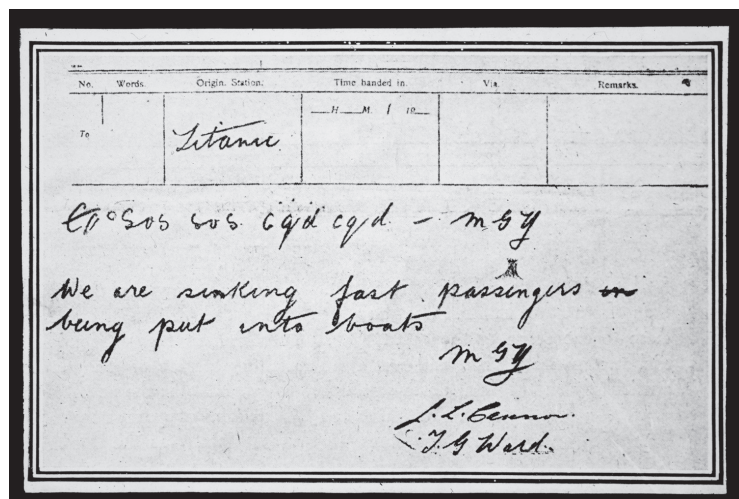 No. Words. Origin. Station. Time handed in. Via. Remarks.
H. M. 19
To
Titanic
SOS SOS cqd cqd – MGY
We are sinking fast passengers
being put into boats
MGY
T G Ward.